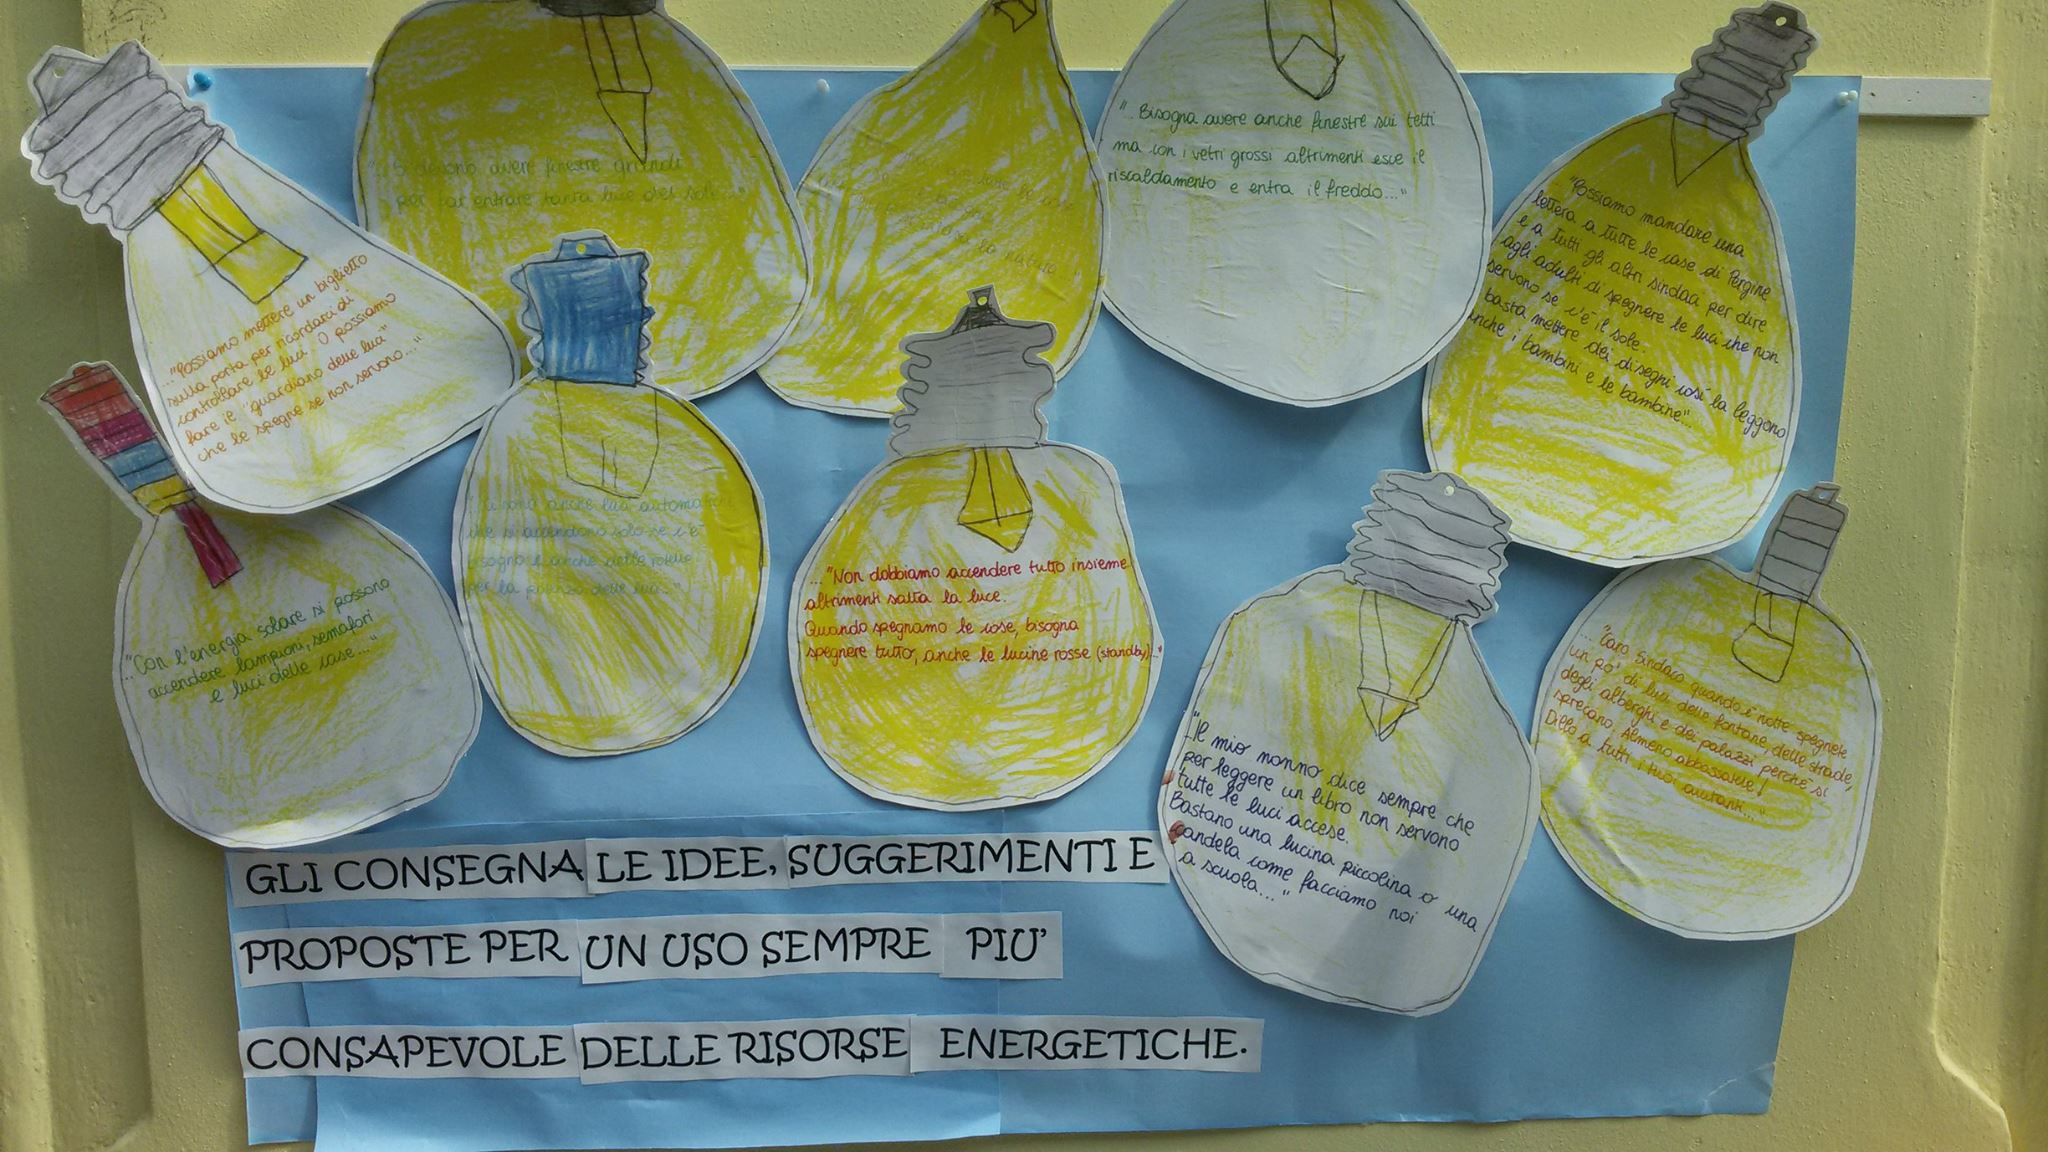 ..."Possiamo mettere un biglietto
sulla porta per ricordarci di
controllare le luci. O possiamo
fare il "guardiano delle luci"
che le spegne se non servono..."
"...Si devono avere finestre grandi
per far entrare tanta luce del sole..."
la natura..."
"... Bisogna avere anche finestre sui tetti
ma con i vetri grossi altrimenti esce il
riscaldamento e entra il freddo..."
"Possiamo mandare una
lettera a tutte le case di Pergine
e a tutti gli altri sindaci per dire
agli adulti di spegnere le luci che non
servono se c'è il sole.
basta mettere dei disegni così la leggono
anche i bambini e le bambine"...
"Con l'energia solare si possono
accendere lampioni, semafori
e luci delle case..."
sono anche luci automatiche
che si accendono solo se c'è
bisogno e anche delle rotelle
per la potenza delle luci..."
..."Non dobbiamo accendere tutto insieme
altrimenti salta la luce.
Quando spegnamo le cose, bisogna
spegnere tutto, anche le lucine rosse (standby)..."
..."Il mio nonno dice sempre che
per leggere un libro non servono
tutte le luci accese.
Bastano una lucina piccolina o una
candela come facciamo noi
a scuola..."
..."Caro Sindaco quando è notte spegnete
un po' di luci delle fontane, delle strade,
degli alberghi e dei palazzi perché si
sprecano. Almeno abbassatele!
Dillo a tutti i tuoi aiutanti..."
GLI CONSEGNA LE IDEE, SUGGERIMENTI E
PROPOSTE PER UN USO SEMPRE PIU'
CONSAPEVOLE DELLE RISORSE ENERGETICHE.